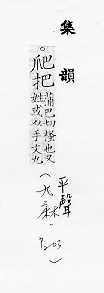 集韻
爬把
蒲巴切搔也又
姓或从手文九
平聲
(九麻